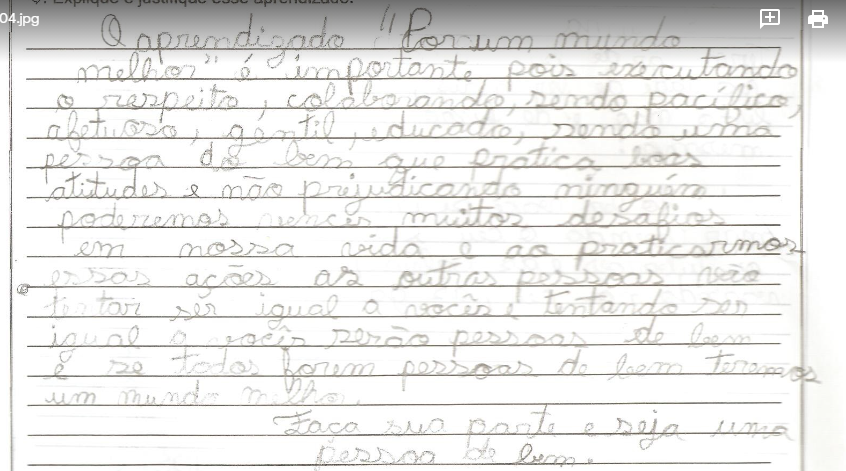 9. Explique e justifique esse aprendizado.
04.jpg
O aprendizado "Por um mundo
melhor" é importante, pois executando
o respeito, colaborando, sendo pacífico,
afetuoso, gentil, educado, sendo uma
pessoa do bem que pratica boas
atitudes e não prejudicando ninguém
poderemos vencer muitos desafios
em nossa vida e ao praticarmos
essas ações as outras pessoas vão
tentar ser igual a vocês e tentando ser
igual a vocês serão pessoas de bem
e se todos forem pessoas de bem teremos
um mundo melhor.
Faça sua parte e seja uma
pessoa de bem.